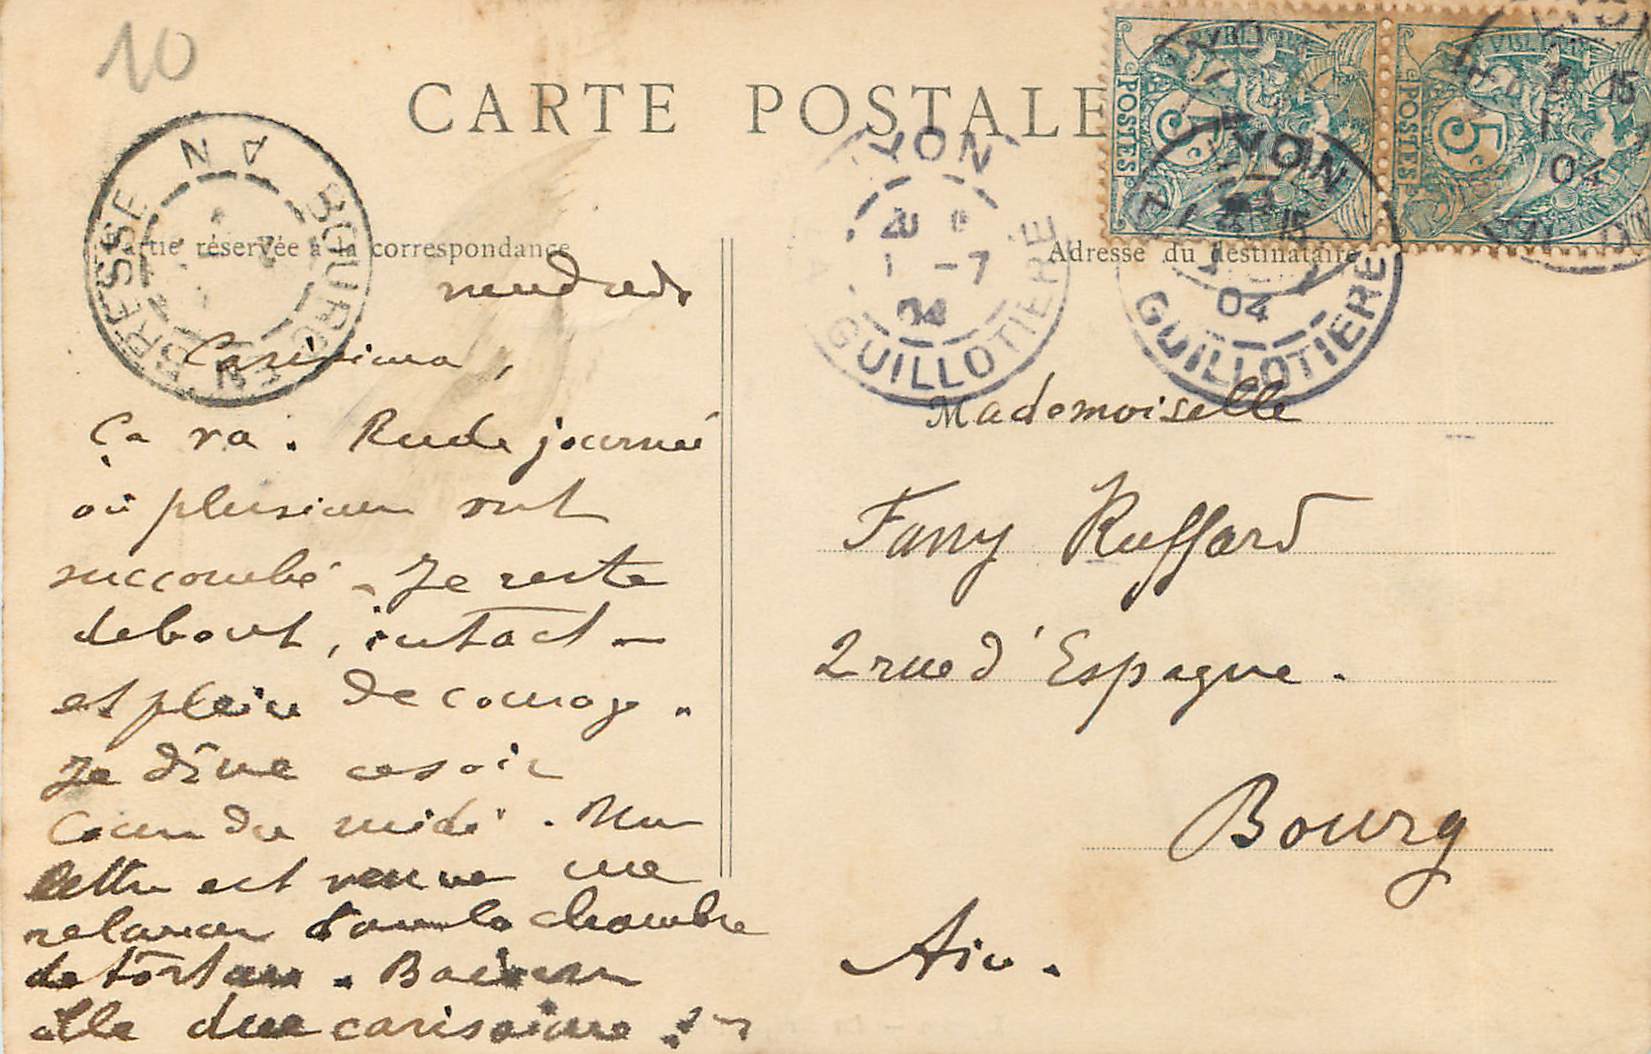 10
CARTE POSTALE
Partie réservée à la correspondance
Adresse du destinataire
BOURG EN BRESSE AIN
LYON GUILLOTIERE
20
1 -7
04
LYON GUILLOTIERE
04
POSTES 5c
POSTES 5c
15
04
vendredi
Carissima,
Ça va. Rude journée
où plusieurs ont
succombé - Je reste
debout, intact -
et plein de courage.
Je dîne ce soir
Cours du midi. Une
lettre est venue me
relancer dans la chambre
de torture. Baisers
alla due carissime!
Mademoiselle
Fanny Ruffard
2 rue d'Espagne.
Bourg
Ain.